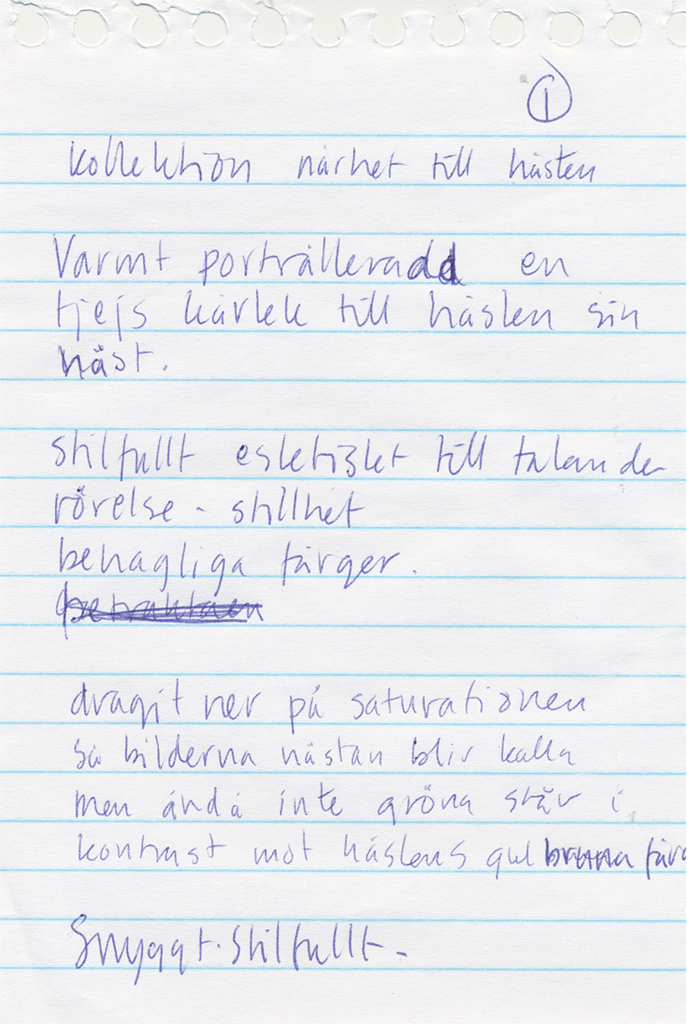 1
kollektion närhet till hästen
Varmt porträtterad en
tjejs kärlek till hästen sin
häst.
stilfullt estetiskt till talande
rörelse - stillhet
behagliga färger.
betraktaen
dragit ner på saturationen
så bilderna nästan blir kalla
men ändå inte gröna står i
kontrast mot hästens gulbruna färg
Snyggt. Stilfullt -